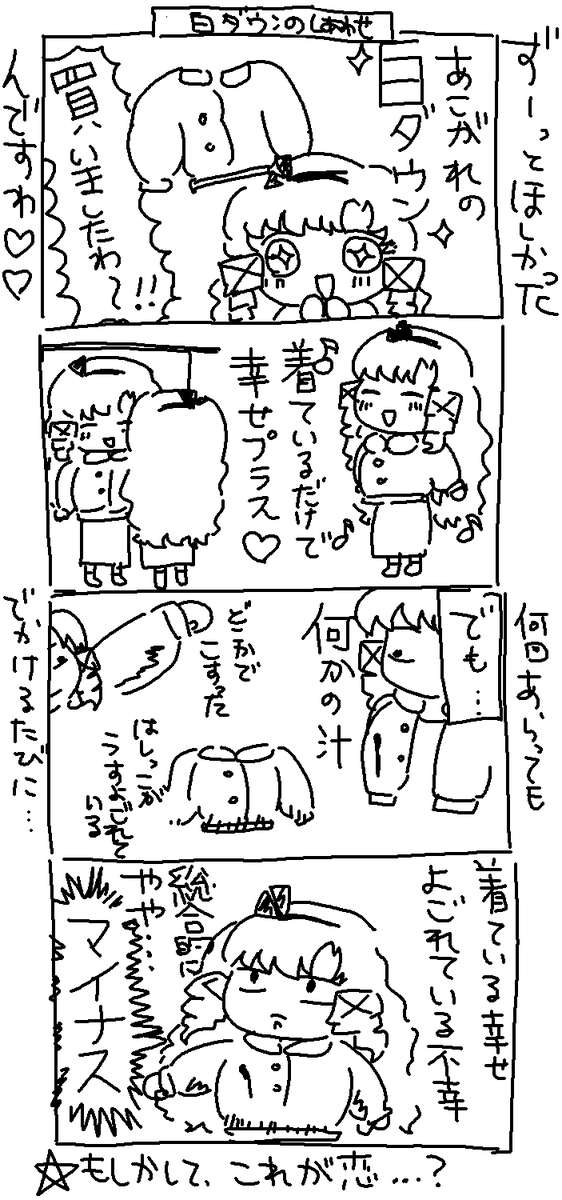 白ダウンのしあわせ
ずーってほしかった
あこがれの
白ダウン
買いましたわ〜!!
んですわ♡♡
着ているだけで
幸せプラス♡
何回あらっても
でも…
何かの汁
どこかで
こすった
はしっこが
うすよごれて
いる
でかけるたびに…
着ている幸せ
よごれている不幸
総合的に
やや…
マイナス
☆もしかして、これが恋…?